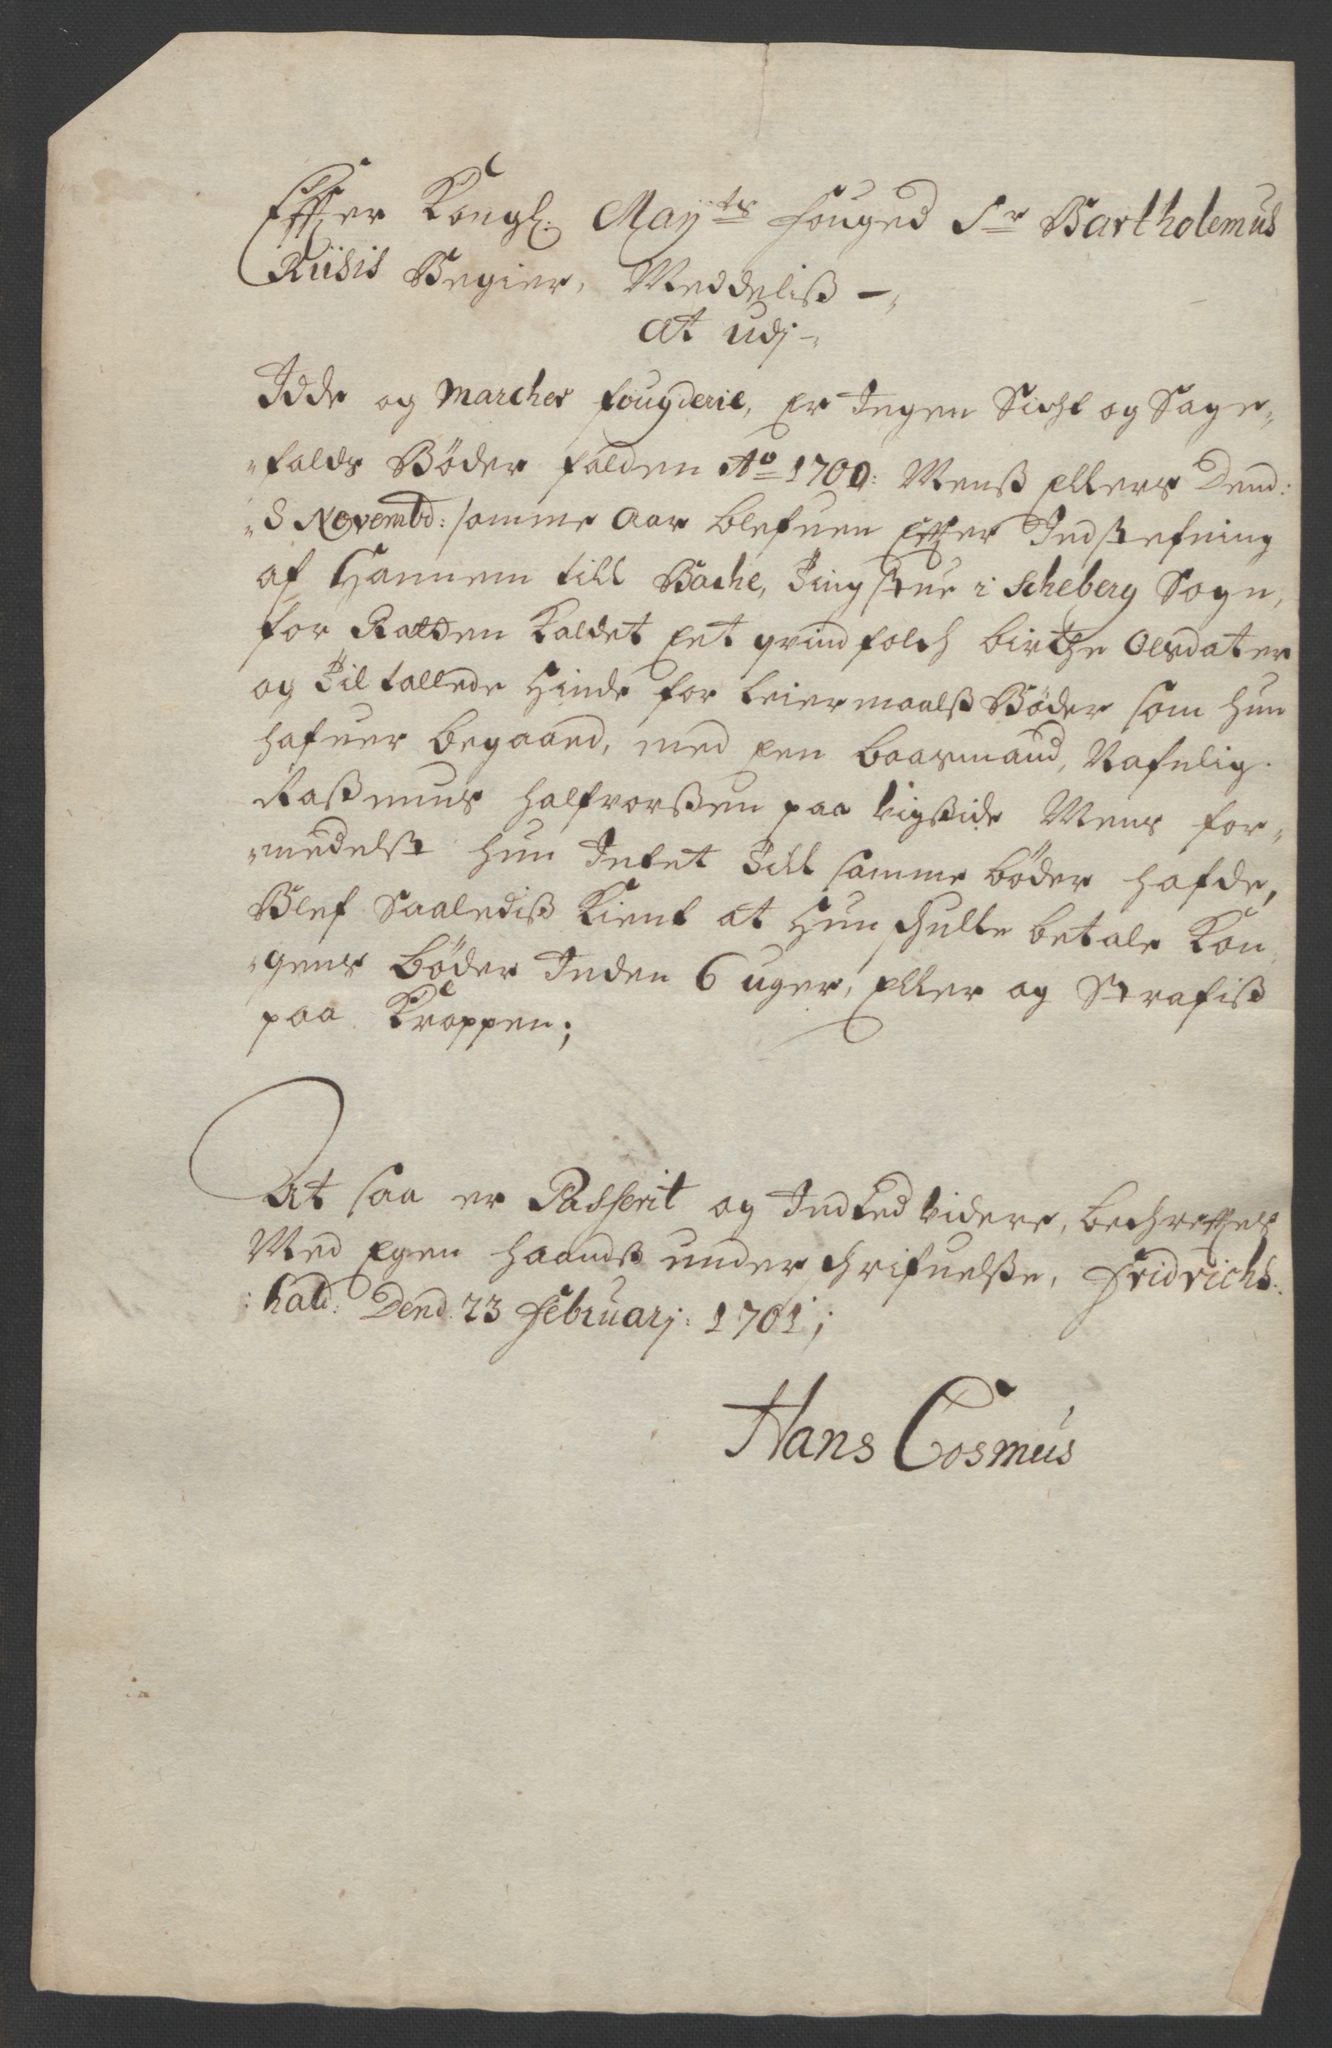 Effter Kongl: Mayts fouged Sr Bartholemus
Riisis Begier, Meddeliß -,
at udj -,
Idde og Marcher fougderie, er Ingen Sicht og Sage-,
-falds Bøder falden Ao 1700: Menß Ellers Dend:
-8 Novembd: samme Aar blefuen Effter Indstefning
af Hannem till Bache, Tingstue i Scheberg Sogn,
for Rætten Kaldet Eet qvindfolch birthe Olsdater
og Tiltallede Hinde for leiermaalß Bøder som hun
hafuer begaaed, med Een baasmand, Nafnlig.
Raßmus halfvorßen paa Vigßide Mens for-,
-medelst hun Intet Till samme bøder hafde,
Blef Saalediß Kient at Hun schulle betale Kon,
-gens bøder Inden 6 uger, Eller og Strafiß
paa Kroppen;
At saa er Passerit og Indted videre, bechreffter
Med Egen haandß underschrifuelße, Fridrichs.
:hald: Dend 23 Februarj: 1701;
Hans Cosmus